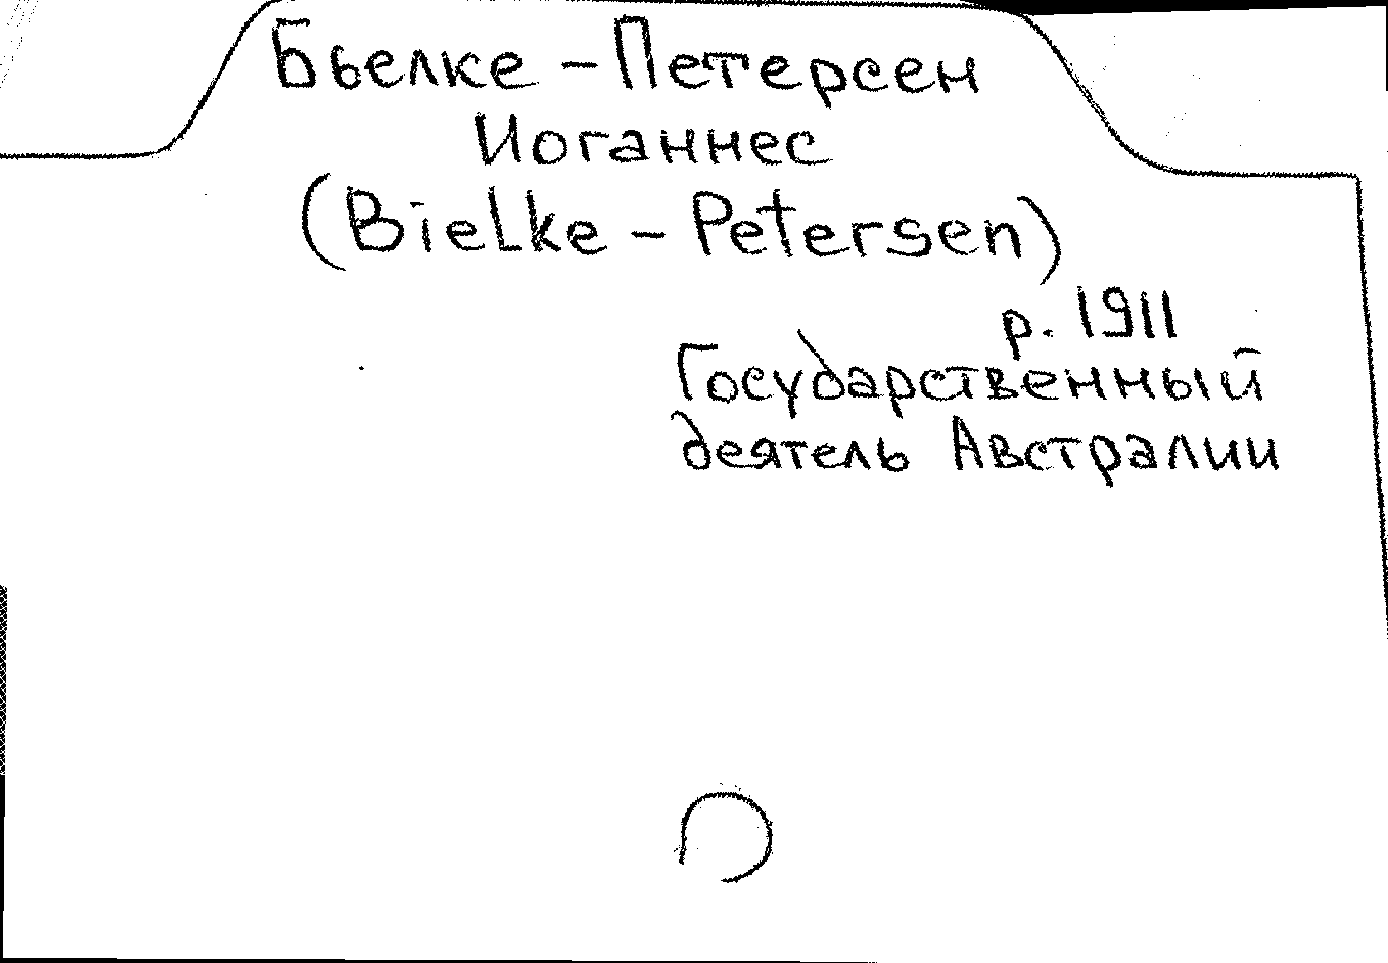 Бьелке - Петерсен
Иоганнес
(Bielke - Petersen)
р. 1911
Государственный
деятель Австралии